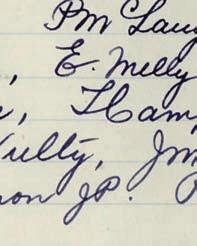 PM Laug
, E. Melly
, Ham
ully, Jm
on JP.